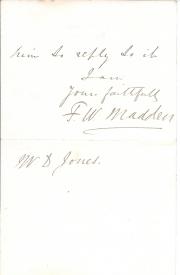 him to reply to it
I am
Yours faithfully
F. W. Madden
Mr D Jones.